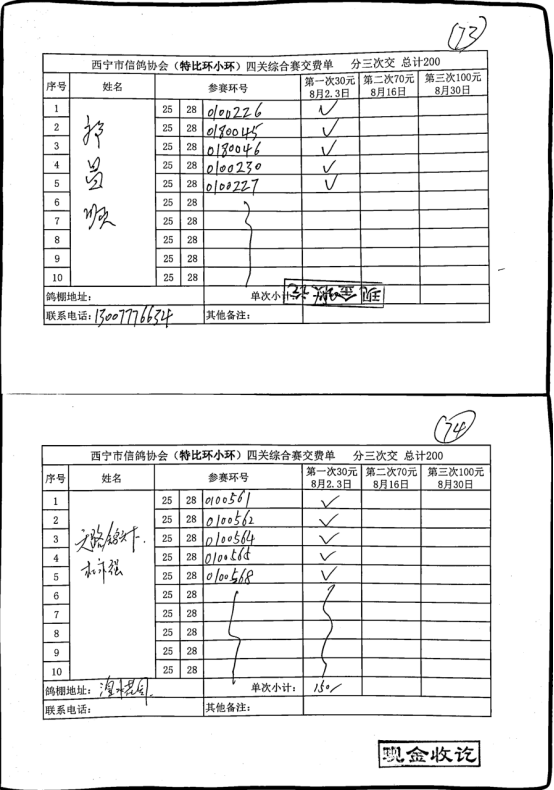 73
西宁市信鸽协会（特比环小环）四关综合赛交费单 分三次交 总计200
序号 姓名 参赛环号 第一次30元 8月2.3日 第二次70元 8月16日 第三次100元 8月30日
1 25 28 0100226 ✓
2 25 28 0180045 ✓
3 25 28 0180046 ✓
4 25 28 0100230 ✓
5 25 28 0100227 ✓
6 25 28
7 25 28
8 25 28
9 25 28
10 25 28
鸽棚地址： 单次小计：
现金收讫
联系电话：13007776634 其他备注：
74
西宁市信鸽协会（特比环小环）四关综合赛交费单 分三次交 总计200
序号 姓名 参赛环号 第一次30元 8月2.3日 第二次70元 8月16日 第三次100元 8月30日
1 25 28 0100561 ✓
2 25 28 0100562 ✓
3 25 28 0100564 ✓
4 25 28 0100565 ✓
5 25 28 0100568 ✓
6 25 28
7 25 28
8 25 28
9 25 28
10 25 28
鸽棚地址： 单次小计：150
联系电话： 其他备注：
现金收讫